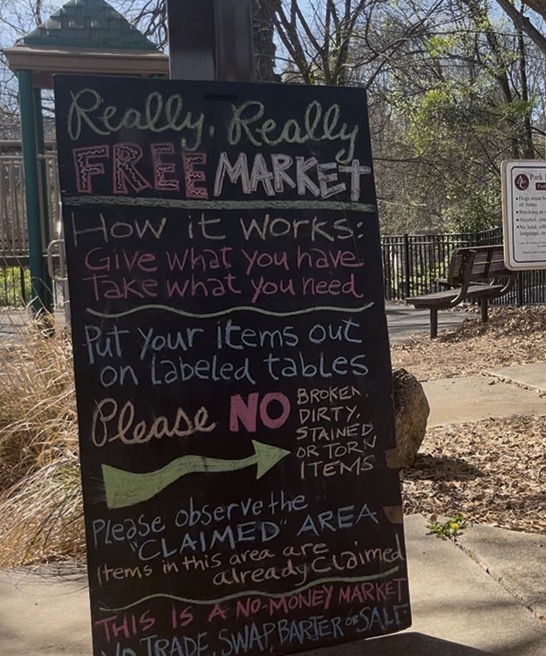 Really, Really
FREE MARKET
How it works:
Give what you have
Take what you need
Put your items out
on labeled tables
Please NO
BROKEN,
DIRTY,
STAINED
OR TORN
ITEMS
Please observe the
"CLAIMED" AREA
Items in this area are
already Claimed
THIS IS A NO-MONEY MARKET
NO TRADE, SWAP, BARTER or SALE
Park